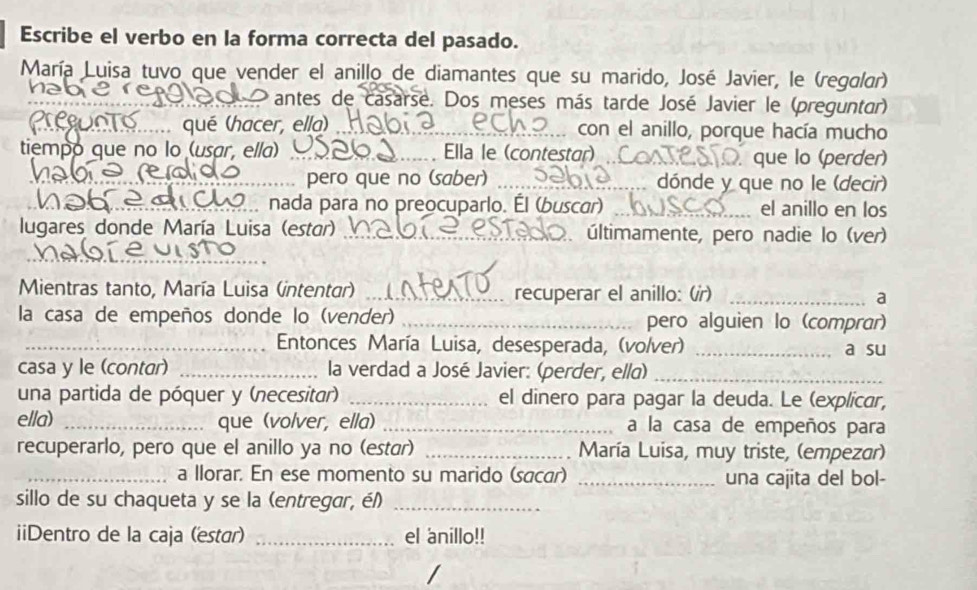 Escribe el verbo en la forma correcta del pasado.
María Luisa tuvo que vender el anillo de diamantes que su marido, José Javier, le (regalar)
habíe regolado antes de casarse. Dos meses más tarde José Javier le (preguntar)
pregunto qué (hacer, ella) Habia echo con el anillo, porque hacía mucho
tiempo que no lo (usar, ella) Usaba. Ella le (contestar) contesto que lo (perder)
había perdido pero que no (saber) sabia dónde y que no le (decir)
había dicho nada para no preocuparlo. Él (buscar) busco el anillo en los
lugares donde María Luisa (estar) había estado últimamente, pero nadie lo (ver)
habíe visto.
Mientras tanto, María Luisa (intentar) intentó recuperar el anillo: (ir) a
la casa de empeños donde lo (vender) pero alguien lo (comprar)
. Entonces María Luisa, desesperada, (volver) a su
casa y le (contar) la verdad a José Javier: (perder, ella)
una partida de póquer y (necesitar) el dinero para pagar la deuda. Le (explicar,
ella) que (volver, ella) a la casa de empeños para
recuperarlo, pero que el anillo ya no (estar) . María Luisa, muy triste, (empezar)
a llorar. En ese momento su marido (sacar) una cajita del bol-
sillo de su chaqueta y se la (entregar, él) .
¡¡Dentro de la caja (estar) el anillo!!